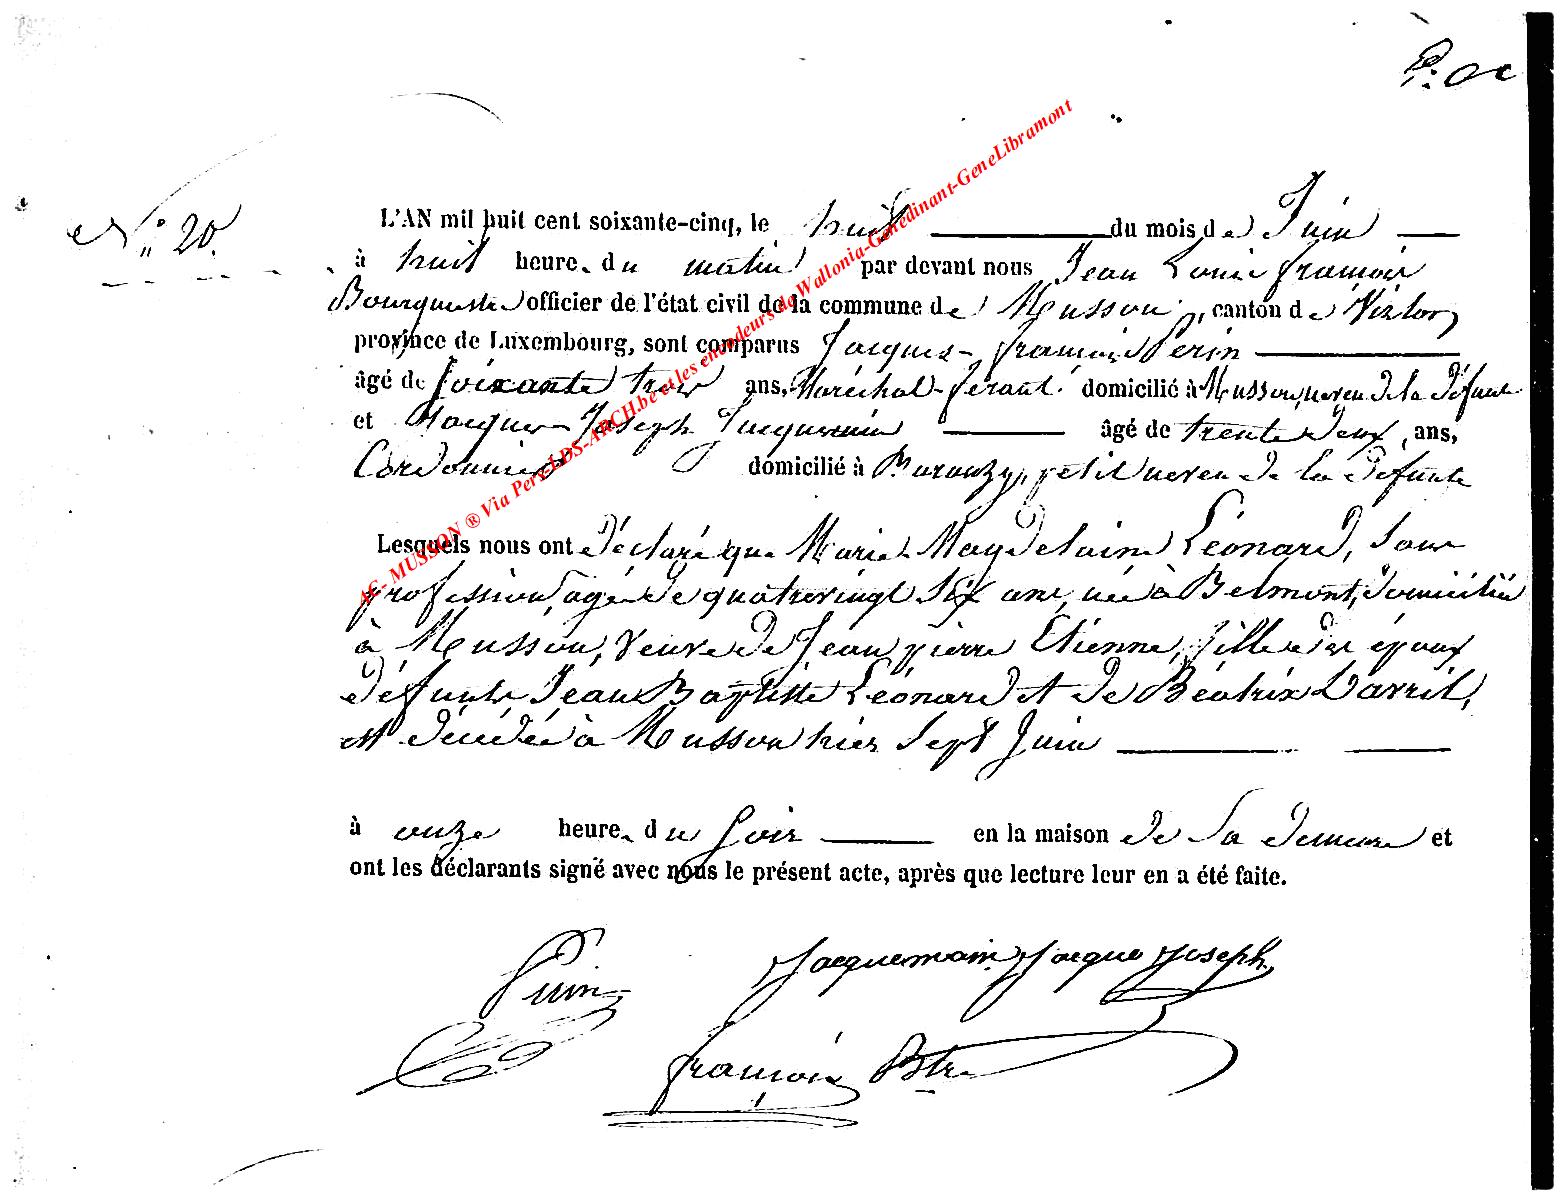 N° 20.
L'AN mil huit cent soixante-cinq, le huit du mois de Juin
à huit heure du matin par devant nous Jean Louis françois
Bourgmestre officier de l'état civil de la commune de Musson, canton de Virton,
province de Luxembourg, sont comparus Jacques françois Perin
âgé de soixante trois ans, Maréchal-ferant domicilié à Musson, neveu de la défunte
et Jacques Joseph Jacquemin âgé de trente deux, ans,
Cordonnier domicilié à Baranzy, petit neveu de la défunte
Lesquels nous ont déclaré que Marie Magdelaine Léonard, sans
profession, agée de quatrevingt six ans, née à Belmont, domiciliée
à Musson, veuve de Jean pierre Etienne, fille des époux
défunts Jean Baptiste Léonard et de Béatrix Davril,
est décédée à Musson hier sept Juin
à onze heure du soir en la maison de sa demeure et
ont les déclarants signé avec nous le présent acte, après que lecture leur en a été faite.
Perin Jacquemain Jacque Joseph
françois Btre
AC- MUSSON ® Via Perx-LDS-ARCH.be et les encodeurs de Wallonia-Genedinant-GeneLibramont